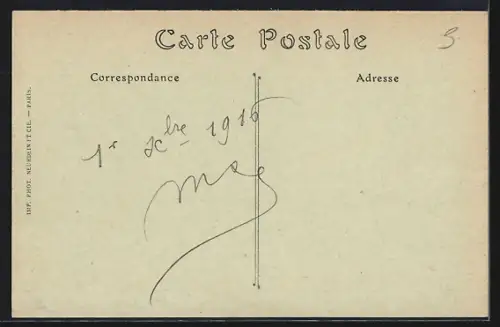 Carte Postale
5
Correspondance
Adresse
1r Xbre 1916
IMP. PHOT. NEURDEIN ET CIE. — PARIS.